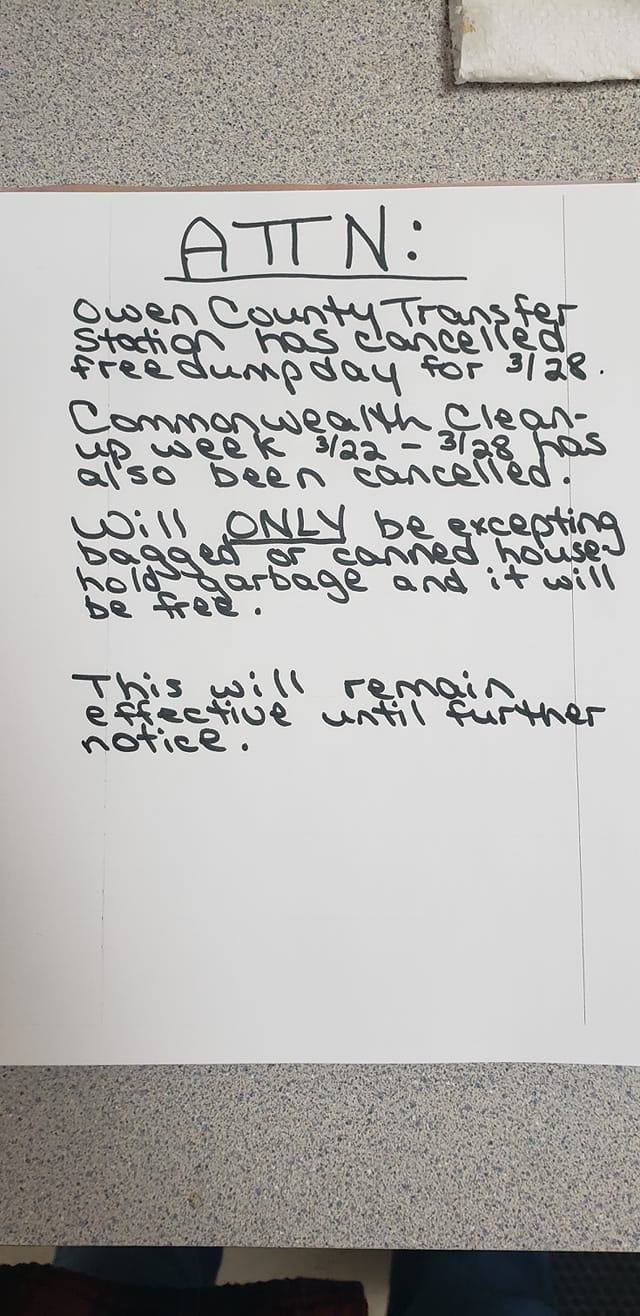 ATTN:
Owen County Transfer
Station has cancelled
free dump day for 3/28.
Commonwealth Clean-
up week 3/22 - 3/28 has
also been cancelled.
Will ONLY be excepting
bagged or canned house-
hold garbage and it will
be free.
This will remain
effective until further
notice.